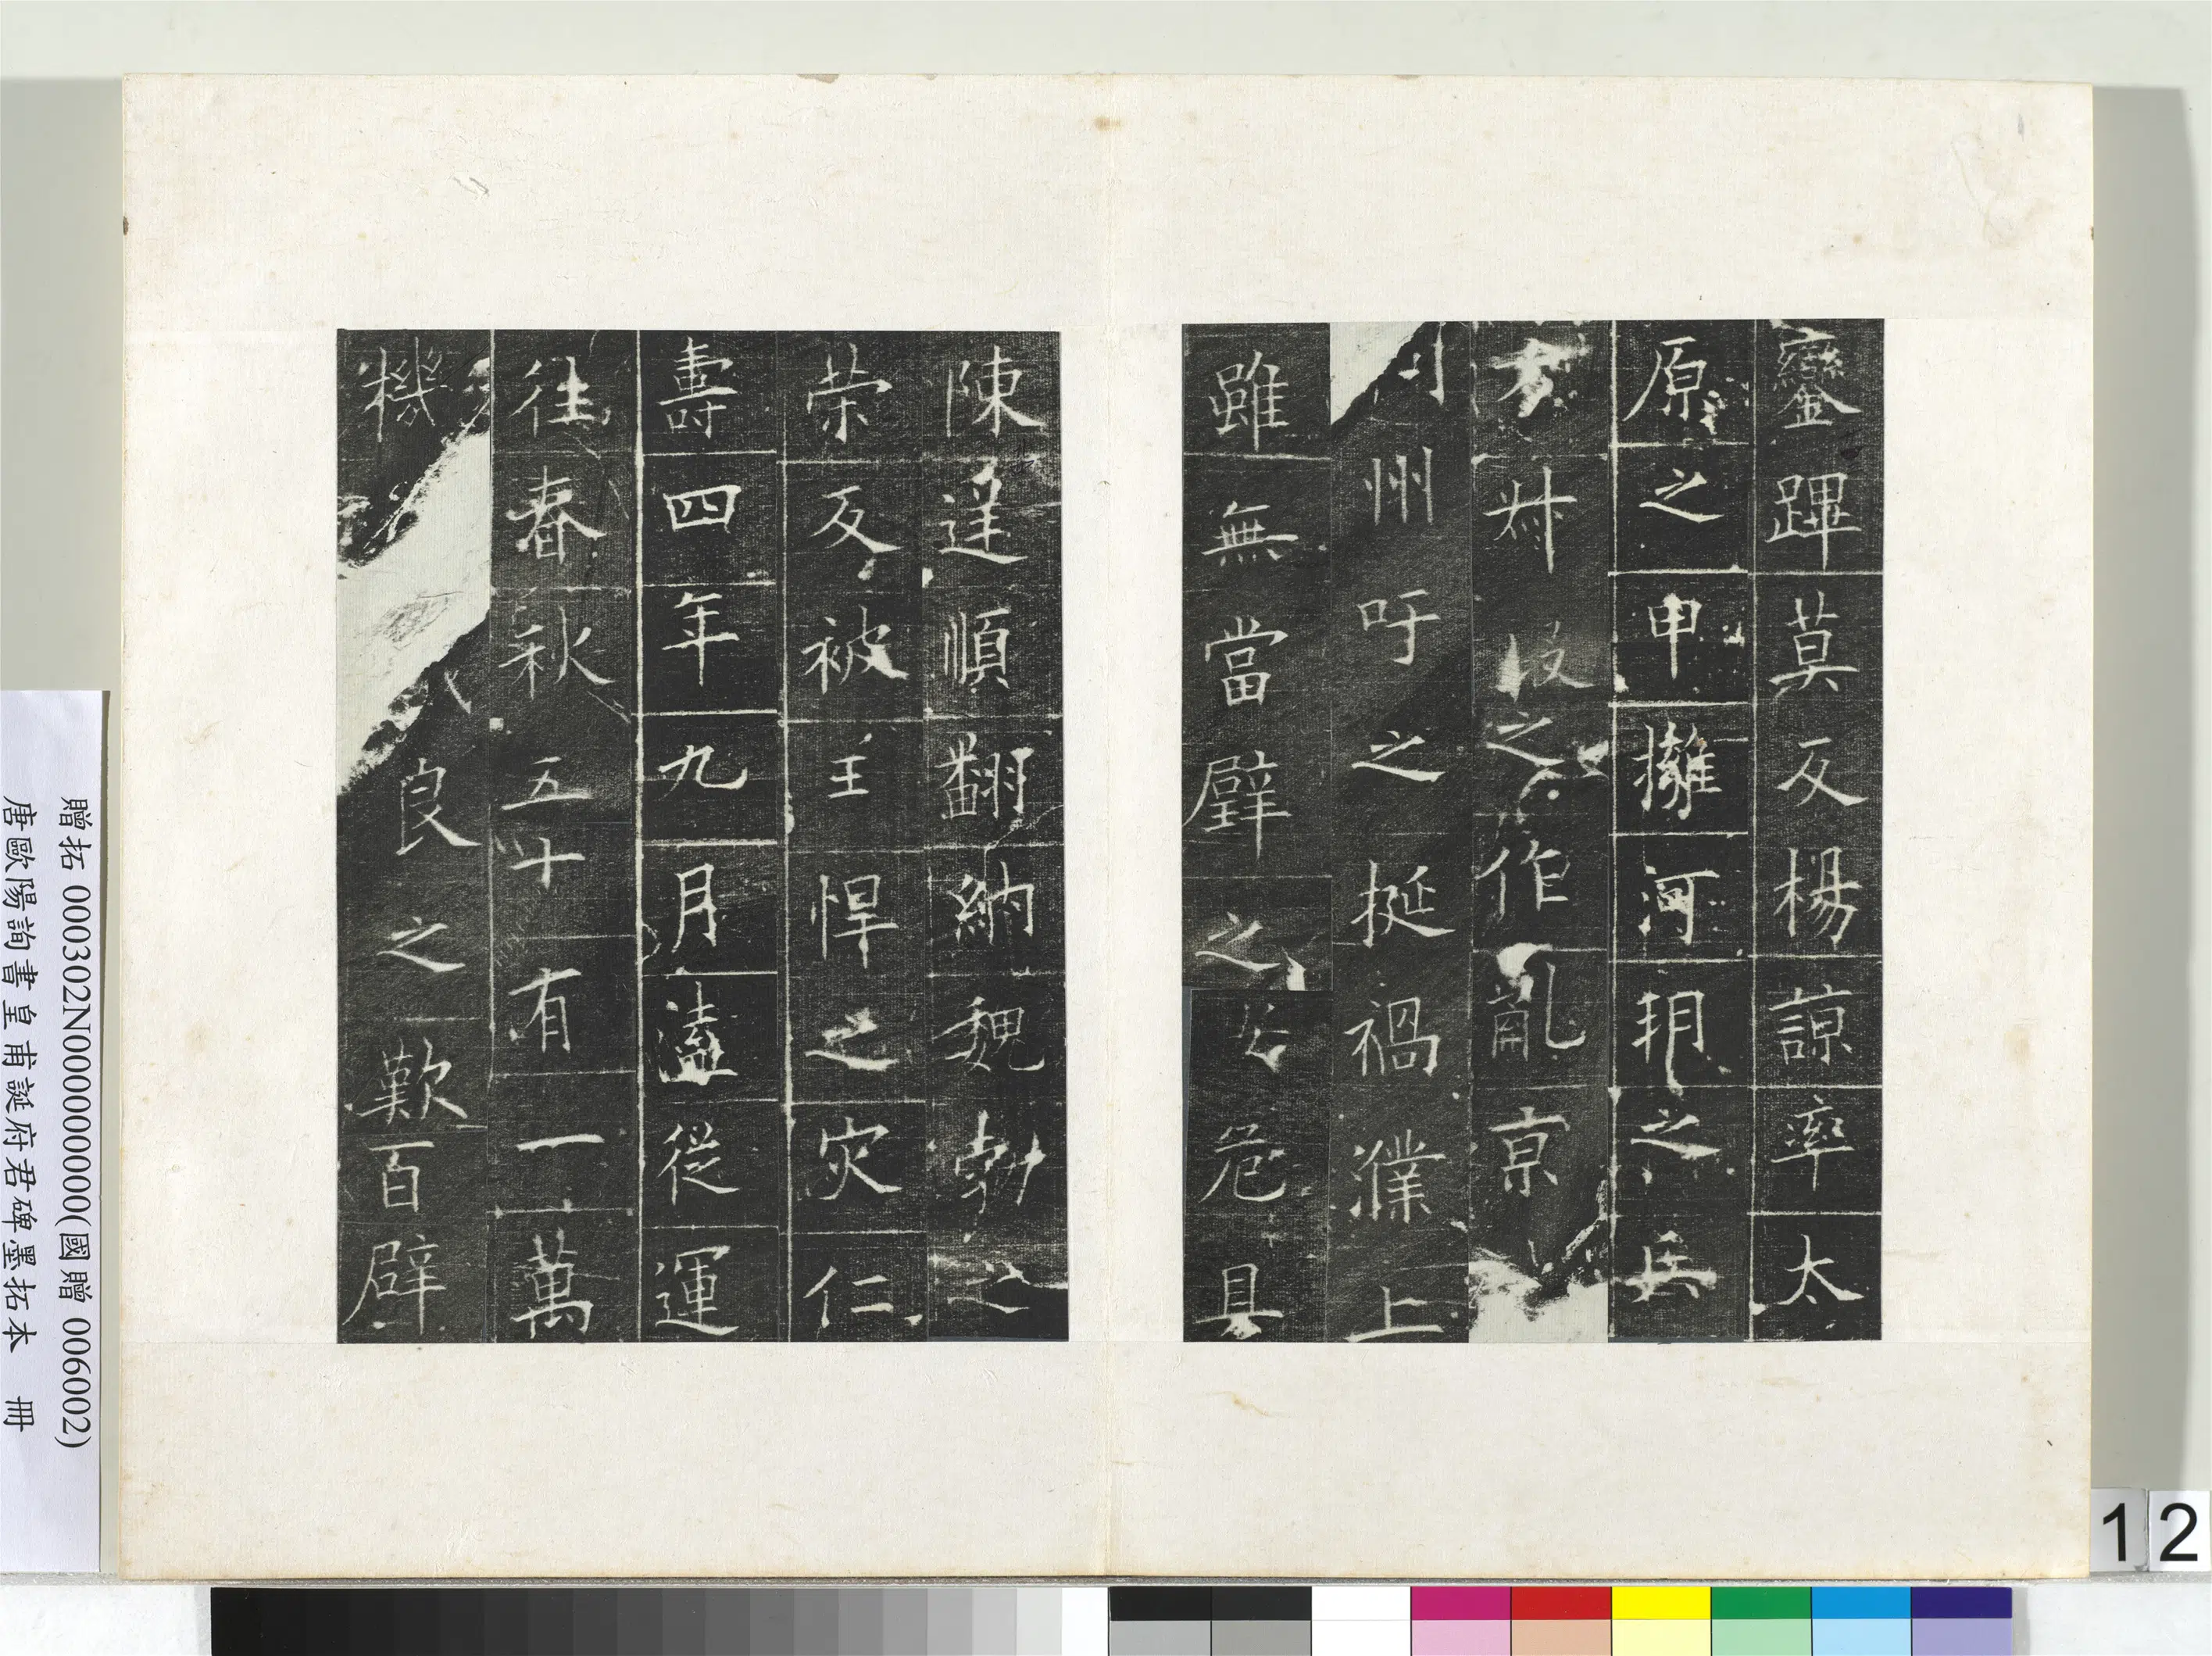 鑾蹕莫反楊諒率太
原之甲擁河朔之兵
方叔段之作亂京
州吁之挺禍濮上
雖無當璧之安危具
陳逆順翻納魏勃之
榮反被王悍之灾仁
壽四年九月溘從運
往春秋五十有一萬
機良之歎百辟
贈拓 000302N000000000(國贈 006002)
唐歐陽詢書皇甫誕府君碑墨拓本 冊
12